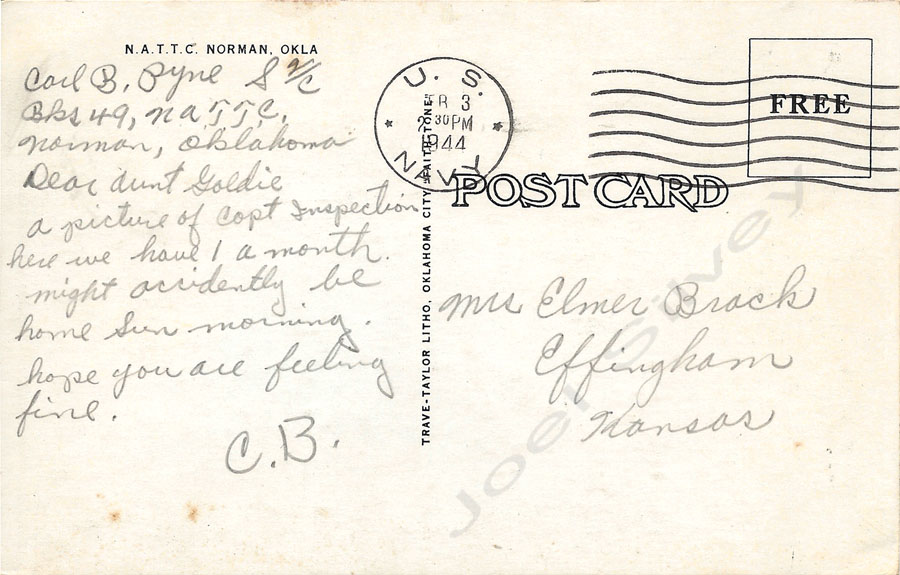 N.A.T.T.C. NORMAN, OKLA
Carl B. Pyne S 2/C
Bks 49, NATTC,
Norman, Oklahoma
Dear Aunt Goldie
a picture of Capt Inspection
here we have 1 a month.
might accidently be
home Sun morning.
hope you are feeling
fine.
C.B.
TRAVE-TAYLOR LITHO, OKLAHOMA CITY
U. S.
3
2 30 PM
1944
NAVY
FREE
POST CARD
Mrs Elmer Brack
Effingham
Kansas
Joel Silvey